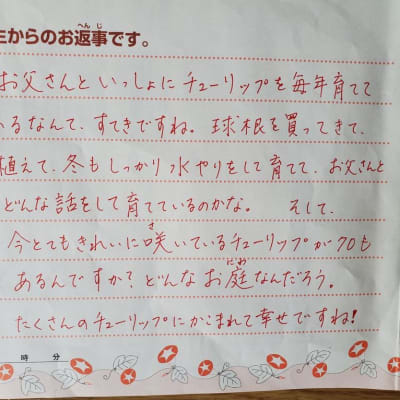 生からのお返事です。
へんじ
お父さんといっしょにチューリップを毎年育てて
いるなんて、すてきですね。球根を買ってきて、
植えて、冬もしっかり水やりをして育てて、お父さんと
どんな話をして育てているのかな。 そして、
今とてもきれいに咲いているチューリップが70も
さ
あるんですか?どんなお庭なんだろう。
にわ
たくさんのチューリップにかこまれて幸せですね!
時 分